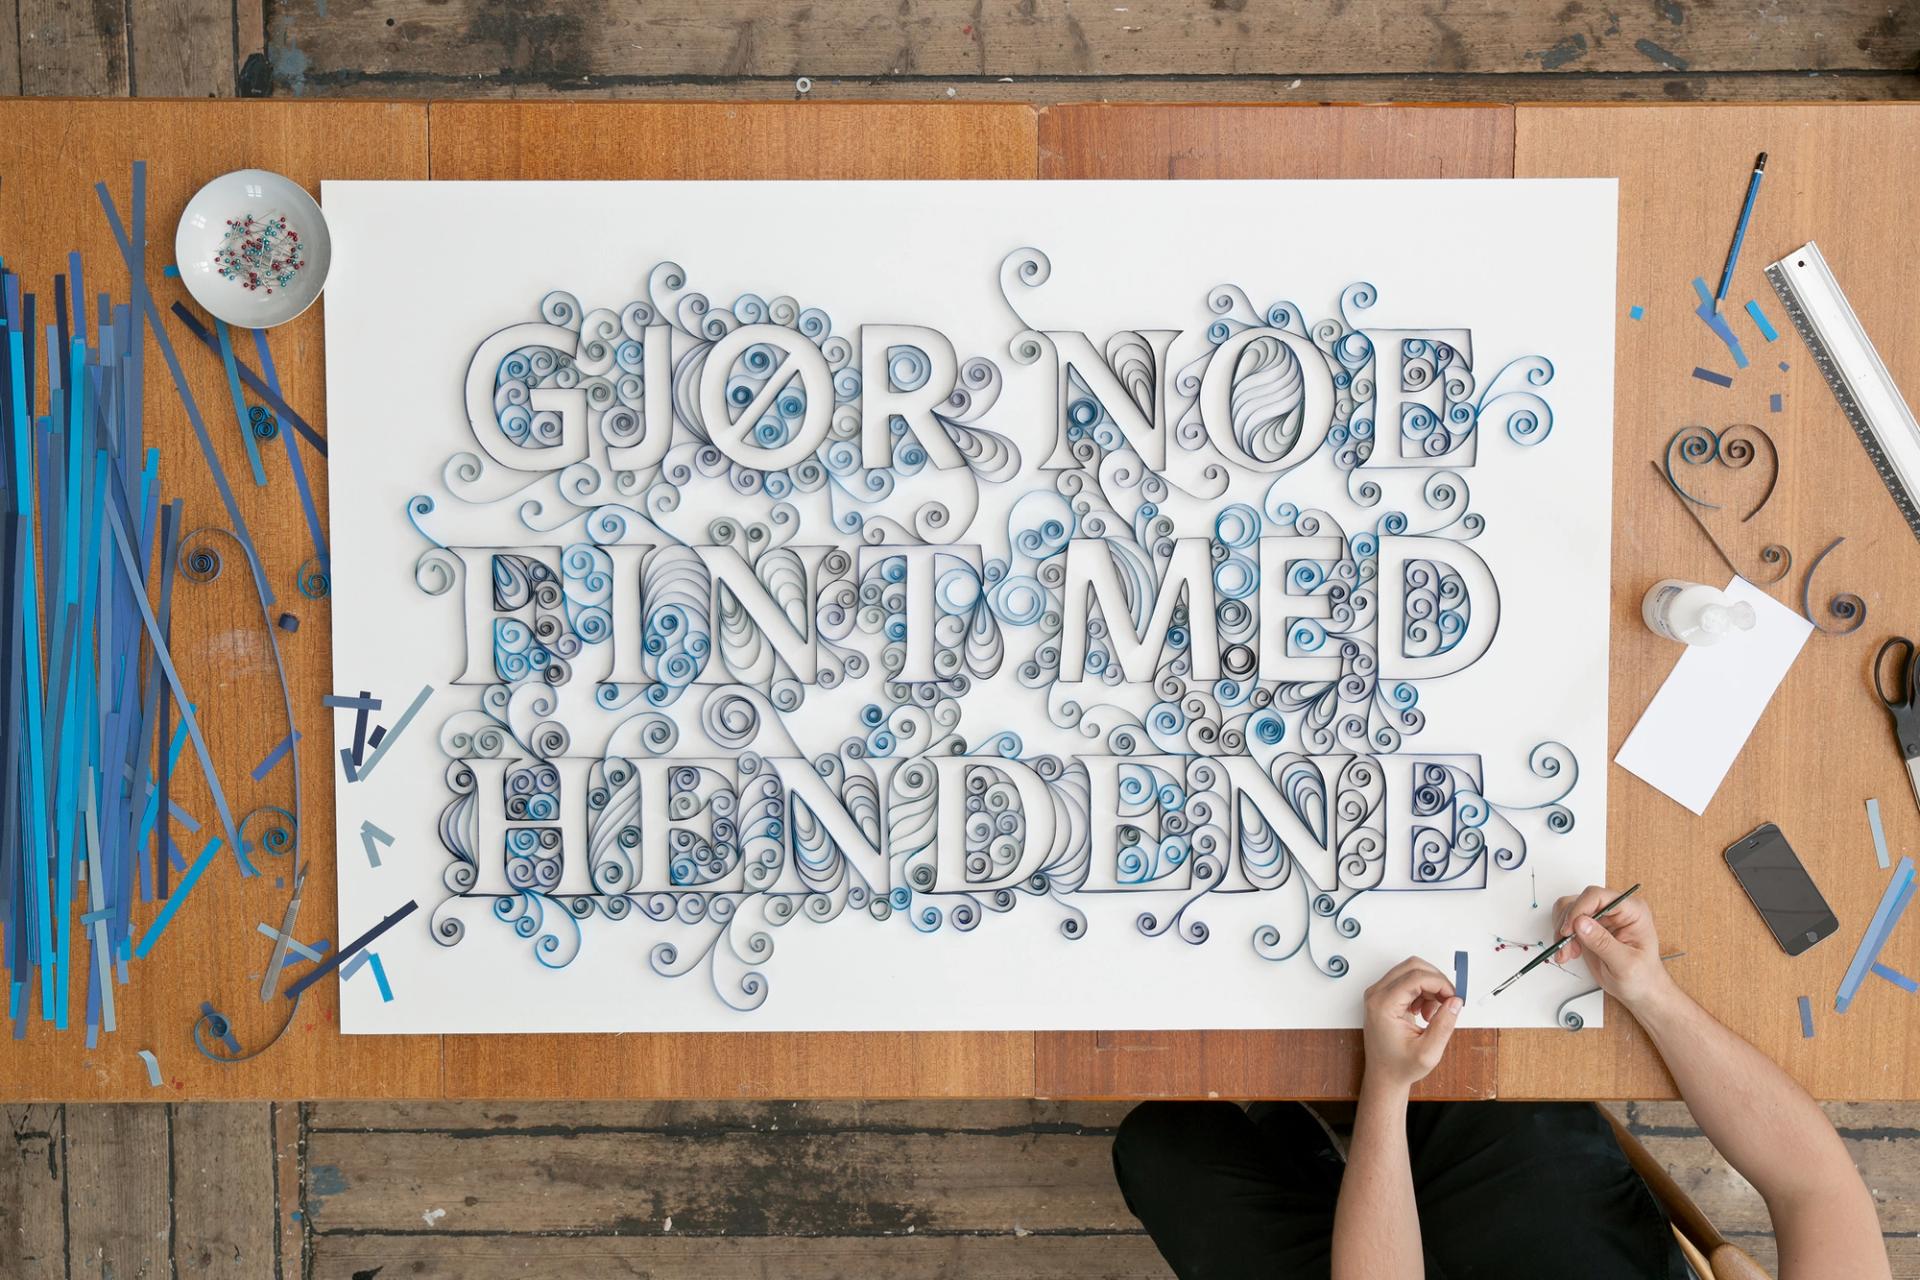 GJØR NOE
FINT MED
HENDENE